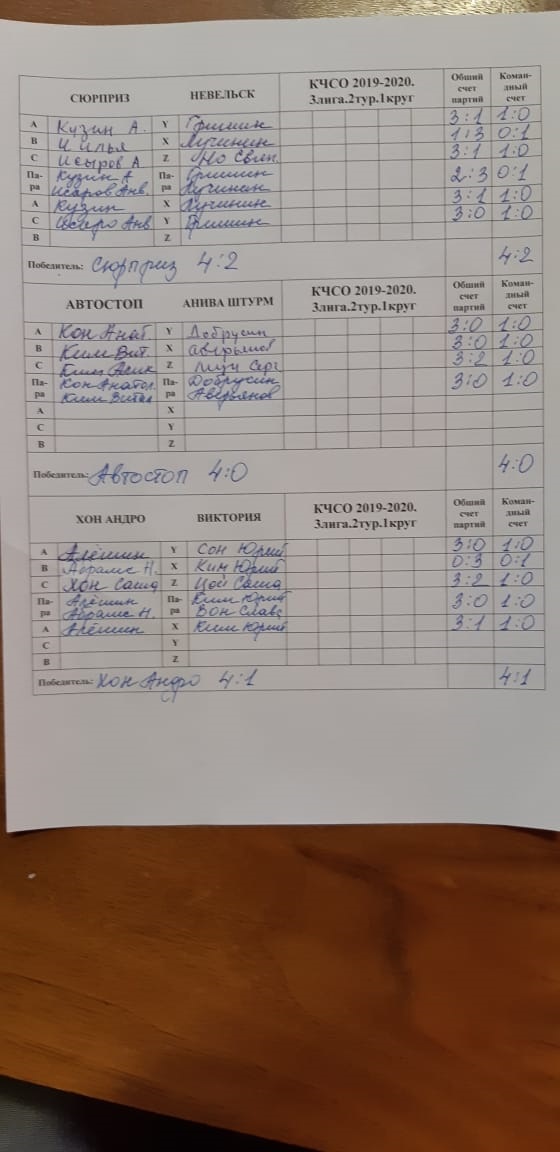 СЮРПРИЗ НЕВЕЛЬСК КЧСО 2019-2020. 3лига.2тур.1круг Общий счет партий Коман-дный счет
A Кузин А. Y Гришин 3:1 1:0
B И Илья X Лучинин 1:3 0:1
C Исыров А Z Но Свен. 3:1 1:0
Па-ра Кузин А Па-ра Гришин 2:3 0:1
Исаров Анв. Кучинин
A Кузин X Кучинин 3:1 1:0
C Анв Y Гришин 3:0 1:0
B Z
Победитель: Сюрприз 4:2 4:2
АВТОСТОП АНИВА ШТУРМ КЧСО 2019-2020. 3лига.2тур.1круг Общий счет партий Коман-дный счет
A Кон Анат. Y Добрусин 3:0 1:0
B Ким Вит. X 3:0 1:0
C Ким Z Серг 3:2 1:0
Па-ра Кон Анатол. Па-ра Добрусин 3:0 1:0
Ким Витал Аверьянов
A X
C Y
B Z
Победитель: Автостоп 4:0 4:0
ХОН АНДРО ВИКТОРИЯ КЧСО 2019-2020. 3лига.2тур.1круг Общий счет партий Коман-дный счет
A Алёшин Y Сон Юрий 3:0 1:0
B Абрамс Н. X Ким Юрий 0:3 0:1
C Хон Саша Z Цой Саша 3:2 1:0
Па-ра Алёшин Па-ра Ким Юрий 3:0 1:0
Абрамс Н. Вон Слава
A Алёшин X Ким Юрий 3:1 1:0
C Y
B Z
Победитель: Хон Андро 4:1 4:1